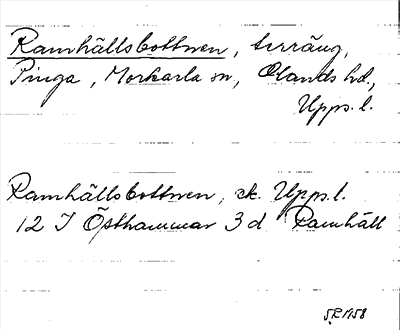 Ramhällsbottnen, terräng,
Pinga, Morkarla sn, Olands hd.,
Upps. l.
Ramhällsbottnen, ek. Upps. l.
12 I Östhammar 3 d Ramhäll
S.R 1958